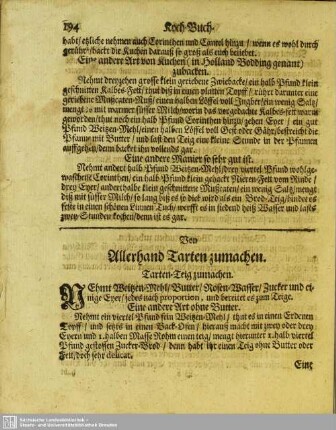 194 Koch-Buch.
habt/ etliche nehmen auch Corinthen und Canel hinzu / wenn es wohl durch
gerührt/ backt die Kuchen darauß so groß als euch beliebet.
Eine andere Art von Kuchen (in Holland Bodding genant)
zubacken.
Nehmt dreyzehen grosse klein geriebene Zwiebacke/ ein halb Pfund klein
geschnitten Kalbes-Fett/ thut diß in einen platten Topff / rühret darunter eine
geriebene Mußcaten-Nuß/ einen halben Löffel voll Ingber/ ein wenig Saltz/
menget es mit warmer süsser Milch/ wenn das vorgedachte Kalbes-Fett warm
geworden/ thut noch ein halb Pfund Corinthen hinzu/ zehen Eyer / ein gut
Pfund Weitzen-Mehl/ einen halben Löffel voll Gest oder Gähr/ bestreicht die
Pfanne mit Butter / und last den Teig eine kleine Stunde in der Pfannen
auffgehen/ denn backet ihn vollends gar.
Eine andere Manier so sehr gut ist.
Nehmt anderthalb Pfund Weitzen-Mehl/ drey viertel Pfund wohlge-
waschene Corinthen/ ein halb Pfund klein gehackt Nieren-Fett vom Rinde/
drey Eyer/ anderthalbe klein geschnittene Mußcaten/ ein wenig Saltz/ menget
diß mit süsser Milch/ so lang biß es so dick wird als ein Brod-Teig/ bindet es
feste in einen schönen Linnen-Tuch/ werfft es in siedend heiß Wasser und lasts
zwey Stunden kochen/ denn ist es gar.
Von
Allerhand Tarten zumachen.
Tarten-Teig zumachen.
NEhmt Weitzen-Mehl/ Butter/ Rosen-Wasser/ Zucker und ei-
nige Eyer/ jedes nach proportion, und bereitet es zum Teige.
Eine andere Art ohne Butter.
Nehmt ein viertel Pfund fein Weitzen-Mehl / that es in einen Erdenen
Topff / und setzts in einen Back-Ofen / hierauß macht mit zwey oder drey
Eyern und 1. halben Masse Rohm einen teig/ menget hierunter 1. halb viertel
Pfund gestossen Zucker-Brod / denn habt ihr einen Teig ohne Butter oder
Fett/ doch sehr delicat.
Eine
Sächsische Landesbibliothek -
Staats- und Universitätsbibliothek Dresden